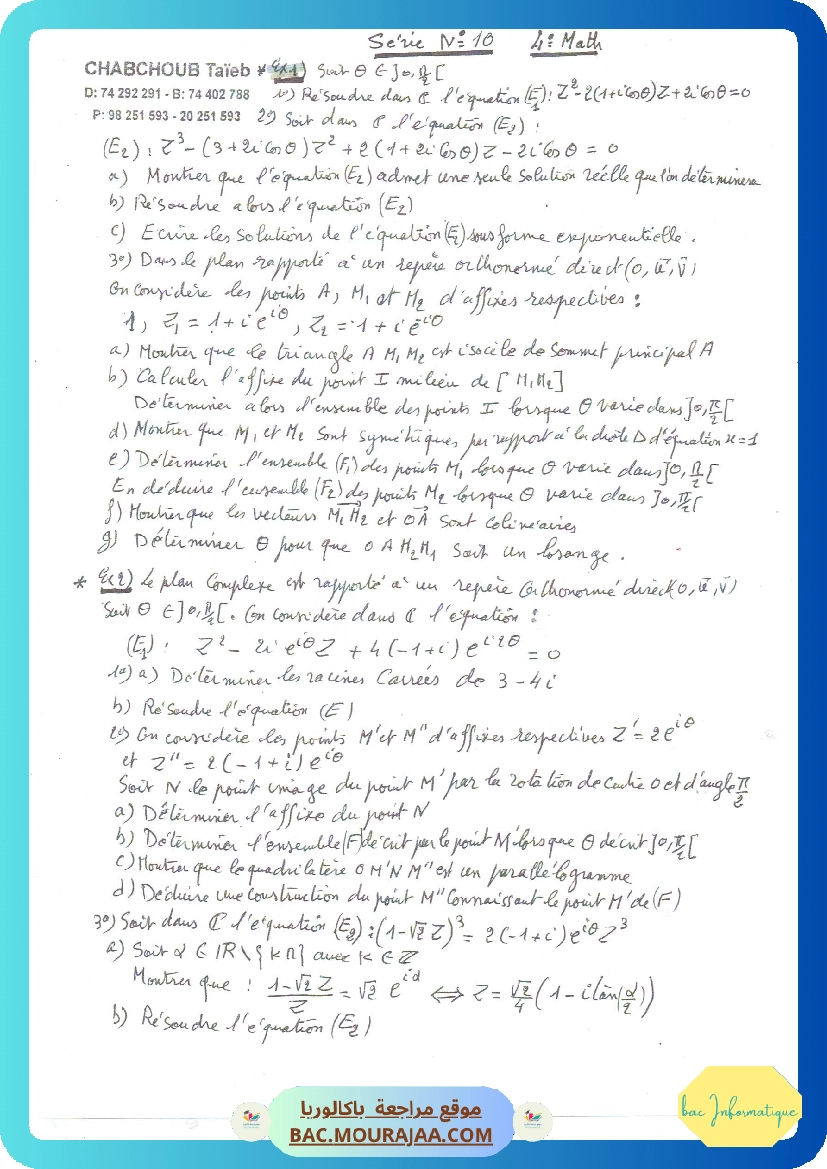 Série N° 10 4è Math
CHABCHOUB Taïeb * Ex1) Soit θ ∈ ]0, π/2[
D: 74 292 291 - B: 74 402 788 1°) Résoudre dans ℂ l'équation (E₁): Z² - 2(1+i cosθ)Z + 2i cosθ = 0
P: 98 251 593 - 20 251 593 2°) Soit dans ℂ l'équation (E₂) :
(E₂) : Z³ - (3 + 2i cosθ)Z² + 2(1 + 2i cosθ)Z - 2i cosθ = 0
a) Montrer que l'équation (E₂) admet une seule solution réelle que l'on déterminera
b) Résoudre alors l'équation (E₂)
c) Ecrire les solutions de l'équation (E₂) sous forme exponentielle.
3°) Dans le plan rapporté à un repère orthonormé direct (0, u⃗, v⃗)
On considère les points A, M₁ et M₂ d'affixes respectives :
1, Z₁ = 1 + i e^{iθ}, Z₂ = 1 + i e^{-iθ}
a) Montrer que le triangle A M₁ M₂ est isocèle de sommet principal A
b) Calculer l'affixe du point I milieu de [M₁M₂]
Déterminer alors l'ensemble des points I lorsque θ varie dans ]0, π/2[
d) Montrer que M₁ et M₂ sont symétriques par rapport à la droite Δ d'équation x = 1
e) Déterminer l'ensemble (F₁) des points M₁ lorsque θ varie dans ]0, π/2[
En déduire l'ensemble (F₂) des points M₂ lorsque θ varie dans ]0, π/2[
f) Montrer que les vecteurs M₁M₂ et OA sont colinéaires
g) Déterminer θ pour que O A M₂ M₁ soit un losange.
* Ex2) Le plan complexe est rapporté à un repère orthonormé direct (0, u⃗, v⃗)
Soit θ ∈ ]0, π/2[. On considère dans ℂ l'équation :
(E₁) : Z² - 2i e^{iθ} Z + 4(-1+i) e^{i2θ} = 0
1°) a) Déterminer les racines carrées de 3 - 4i
b) Résoudre l'équation (E)
2°) On considère les points M' et M'' d'affixes respectives Z' = 2e^{iθ}
et Z'' = 2(-1+i)e^{iθ}
Soit N le point image du point M' par la rotation de centre O et d'angle π/2
a) Déterminer l'affixe du point N
b) Déterminer l'ensemble (F) décrit par le point M' lorsque θ décrit ]0, π/2[
c) Montrer que le quadrilatère O M' N M'' est un parallélogramme
d) Déduire une construction du point M'' connaissant le point M' de (F)
3°) Soit dans ℂ l'équation (E₂) : (1 - √2 Z)³ = 2(-1+i)e^{iθ} Z³
a) Soit α ∈ IR \ {kπ} avec k ∈ ℤ
Montrer que : (1-√2 Z)/Z = √2 e^{iα} ⟺ Z = √2/4 (1 - i tan(α/2))
b) Résoudre l'équation (E₂)
موقع مراجعة باكالوريا
BAC.MOURAJAA.COM
bac Informatique